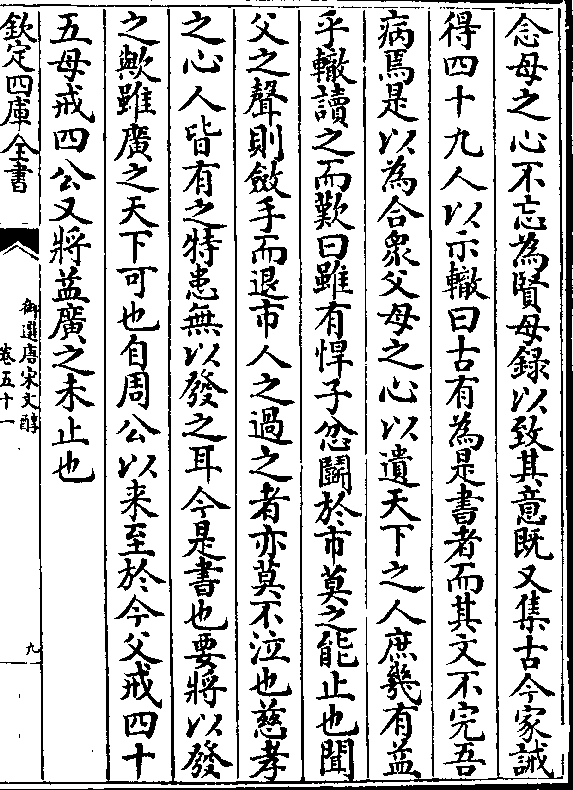 念母之心不忘為賢母録以致其意既又集古今家誡
得四十九人以示轍曰古有為是書者而其文不完吾
病焉是以為合衆父母之心以遺天下之人庶㡬有益
乎轍讀之而歎曰雖有悍子忿鬭於市莫之能止也聞
父之聲則斂手而退市人之過之者亦莫不泣也慈孝
之心人皆有之特患無以發之耳今是書也要將以發
之歟雖廣之天下可也自周公以来至於今父戒四十
五母戒四公又將益廣之未止也
欽定四庫全書
御選唐宋文醇
卷五十一
九